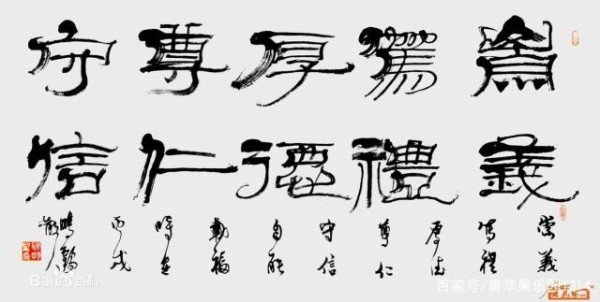 崇義
篤禮
厚德
尊仁
守信
崇義
篤禮
厚德
尊仁
守信
自能
時在
丙戌
Bai百科
百家号/青苹果乐